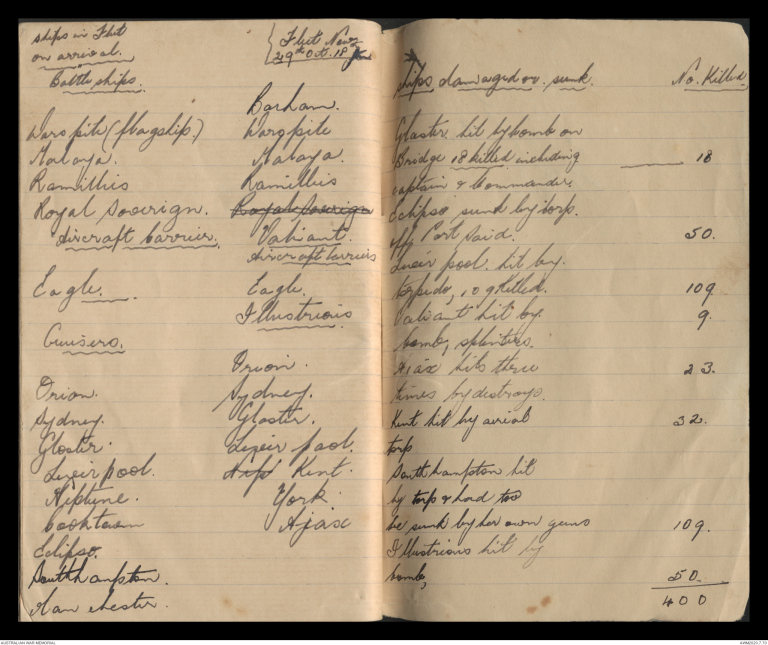 ships in Fleet
on arrival.
Battle ships.
Warspite (flagship.)
Malaya.
Ramillies
Royal Soverign.
Aircraft carrier.
Eagle.
Cruisers.
Orion.
Sydney.
Gloster.
Liverpool.
Neptune.
Eclipso.
Southhanpton.
Manchester.
Fleet Now
29th Oct. 18
Barham.
Warspite
Malaya.
Ramillies
Royal Soverign
Valiant.
Aircraft Carriers
Eagle.
Illustrious
Orion.
Sydney.
Gloster.
Liverpool.
Kent.
York.
Ajax
ships damaged or sunk. No. Killed.
Gloster hit by bomb on
Bridge 18 killed including 18
captain & Commander.
Eclipso sunk by torp.
off Port Said. 50.
Liverpool. hit by.
torpedo, 109 killed. 109
Valiant hit by. 9.
bomb, splinters.
Ajax hits three 23.
times by destroyo.
Kent hit by aerial 32.
torp
South hanpton hit
by torp & had too
be sunk by her own guns 109.
Illustrious hit by
bomb, 50.
400
AUSTRALIAN WAR MEMORIAL